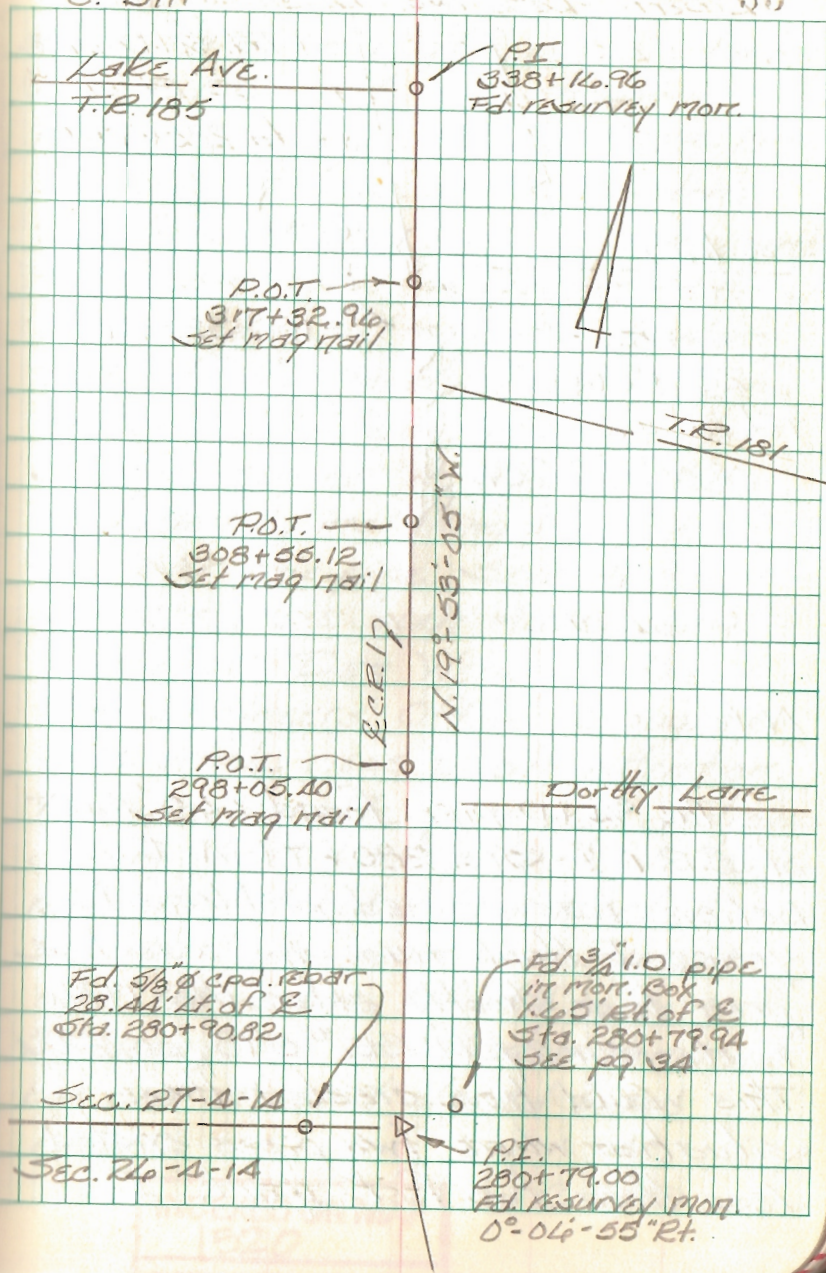 Lake Ave.
T.R. 185
P.I.
338+16.96
Fd. resurvey mon.
P.O.T.
317+32.96
Set mag nail
T.R. 181
P.O.T.
308+55.12
Set mag nail
N. 19°-53'-05" W.
℄ C.R. 17
P.O.T.
298+05.40
Set mag nail
Dortty Lane
Fd. 5/8" ø cpd. rebar
28.44' Lt. of ℄
Sta. 280+90.82
Fd. 3/4" I.D. pipe
in mon. box
1.65' Rt. of ℄
Sta. 280+79.94
See pg. 34
Sec. 27-4-14
Sec. 26-4-14
P.I.
280+79.00
Fd. resurvey mon.
0°-06'-55" Rt.